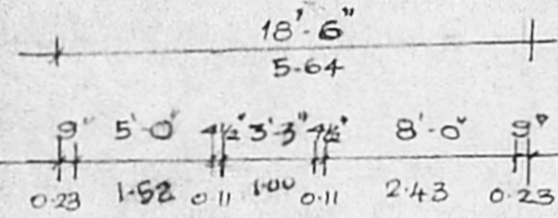 18'-6"
5.64
9" 5'-0" 4½" 3'-3" 4½" 8'-0" 9"
0.23 1.52 0.11 1.00 0.11 2.43 0.23